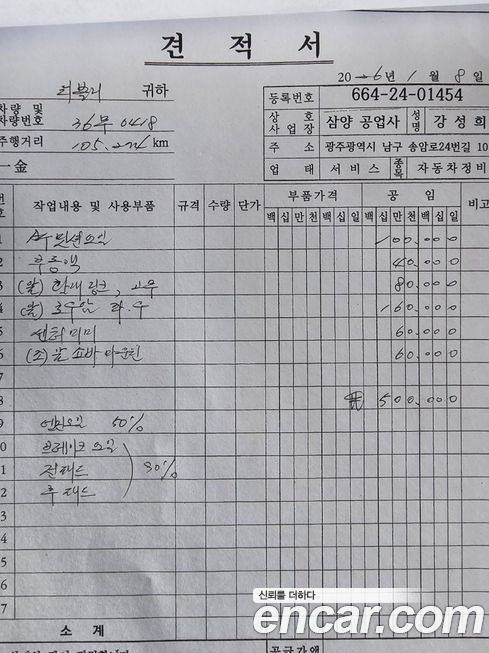 견 적 서
귀하
20 6년 1월 8일
차량 및
차량번호 36무 0418
주행거리 105, km
一金
등록번호 664-24-01454
상호 사업장 삼양 공업사 성명 강성희
주소 광주광역시 남구 송암로24번길 10
업태 서비스 종목 자동차정비
번호 작업내용 및 사용부품 규격 수량 단가 부품가격 공임
백 십 만 천 백 십 일 백 십 만 천 백 십 일
1 미션오일 100.000
2 부동액 40.000
3 (앞) 활대링크, 고무 80.000
4 (앞) 로우암 좌.우 160.000
5 센터미미 60.000
6 (조) 앞 쇼바 마운틴 60.000
7
8 ₩ 500.000
9 엔진오일 50%
10 브레이크오일
11 전패드 30%
12 후패드
13
14
15
16
17
소 계
공급가액
신뢰를 더하다
encar.com